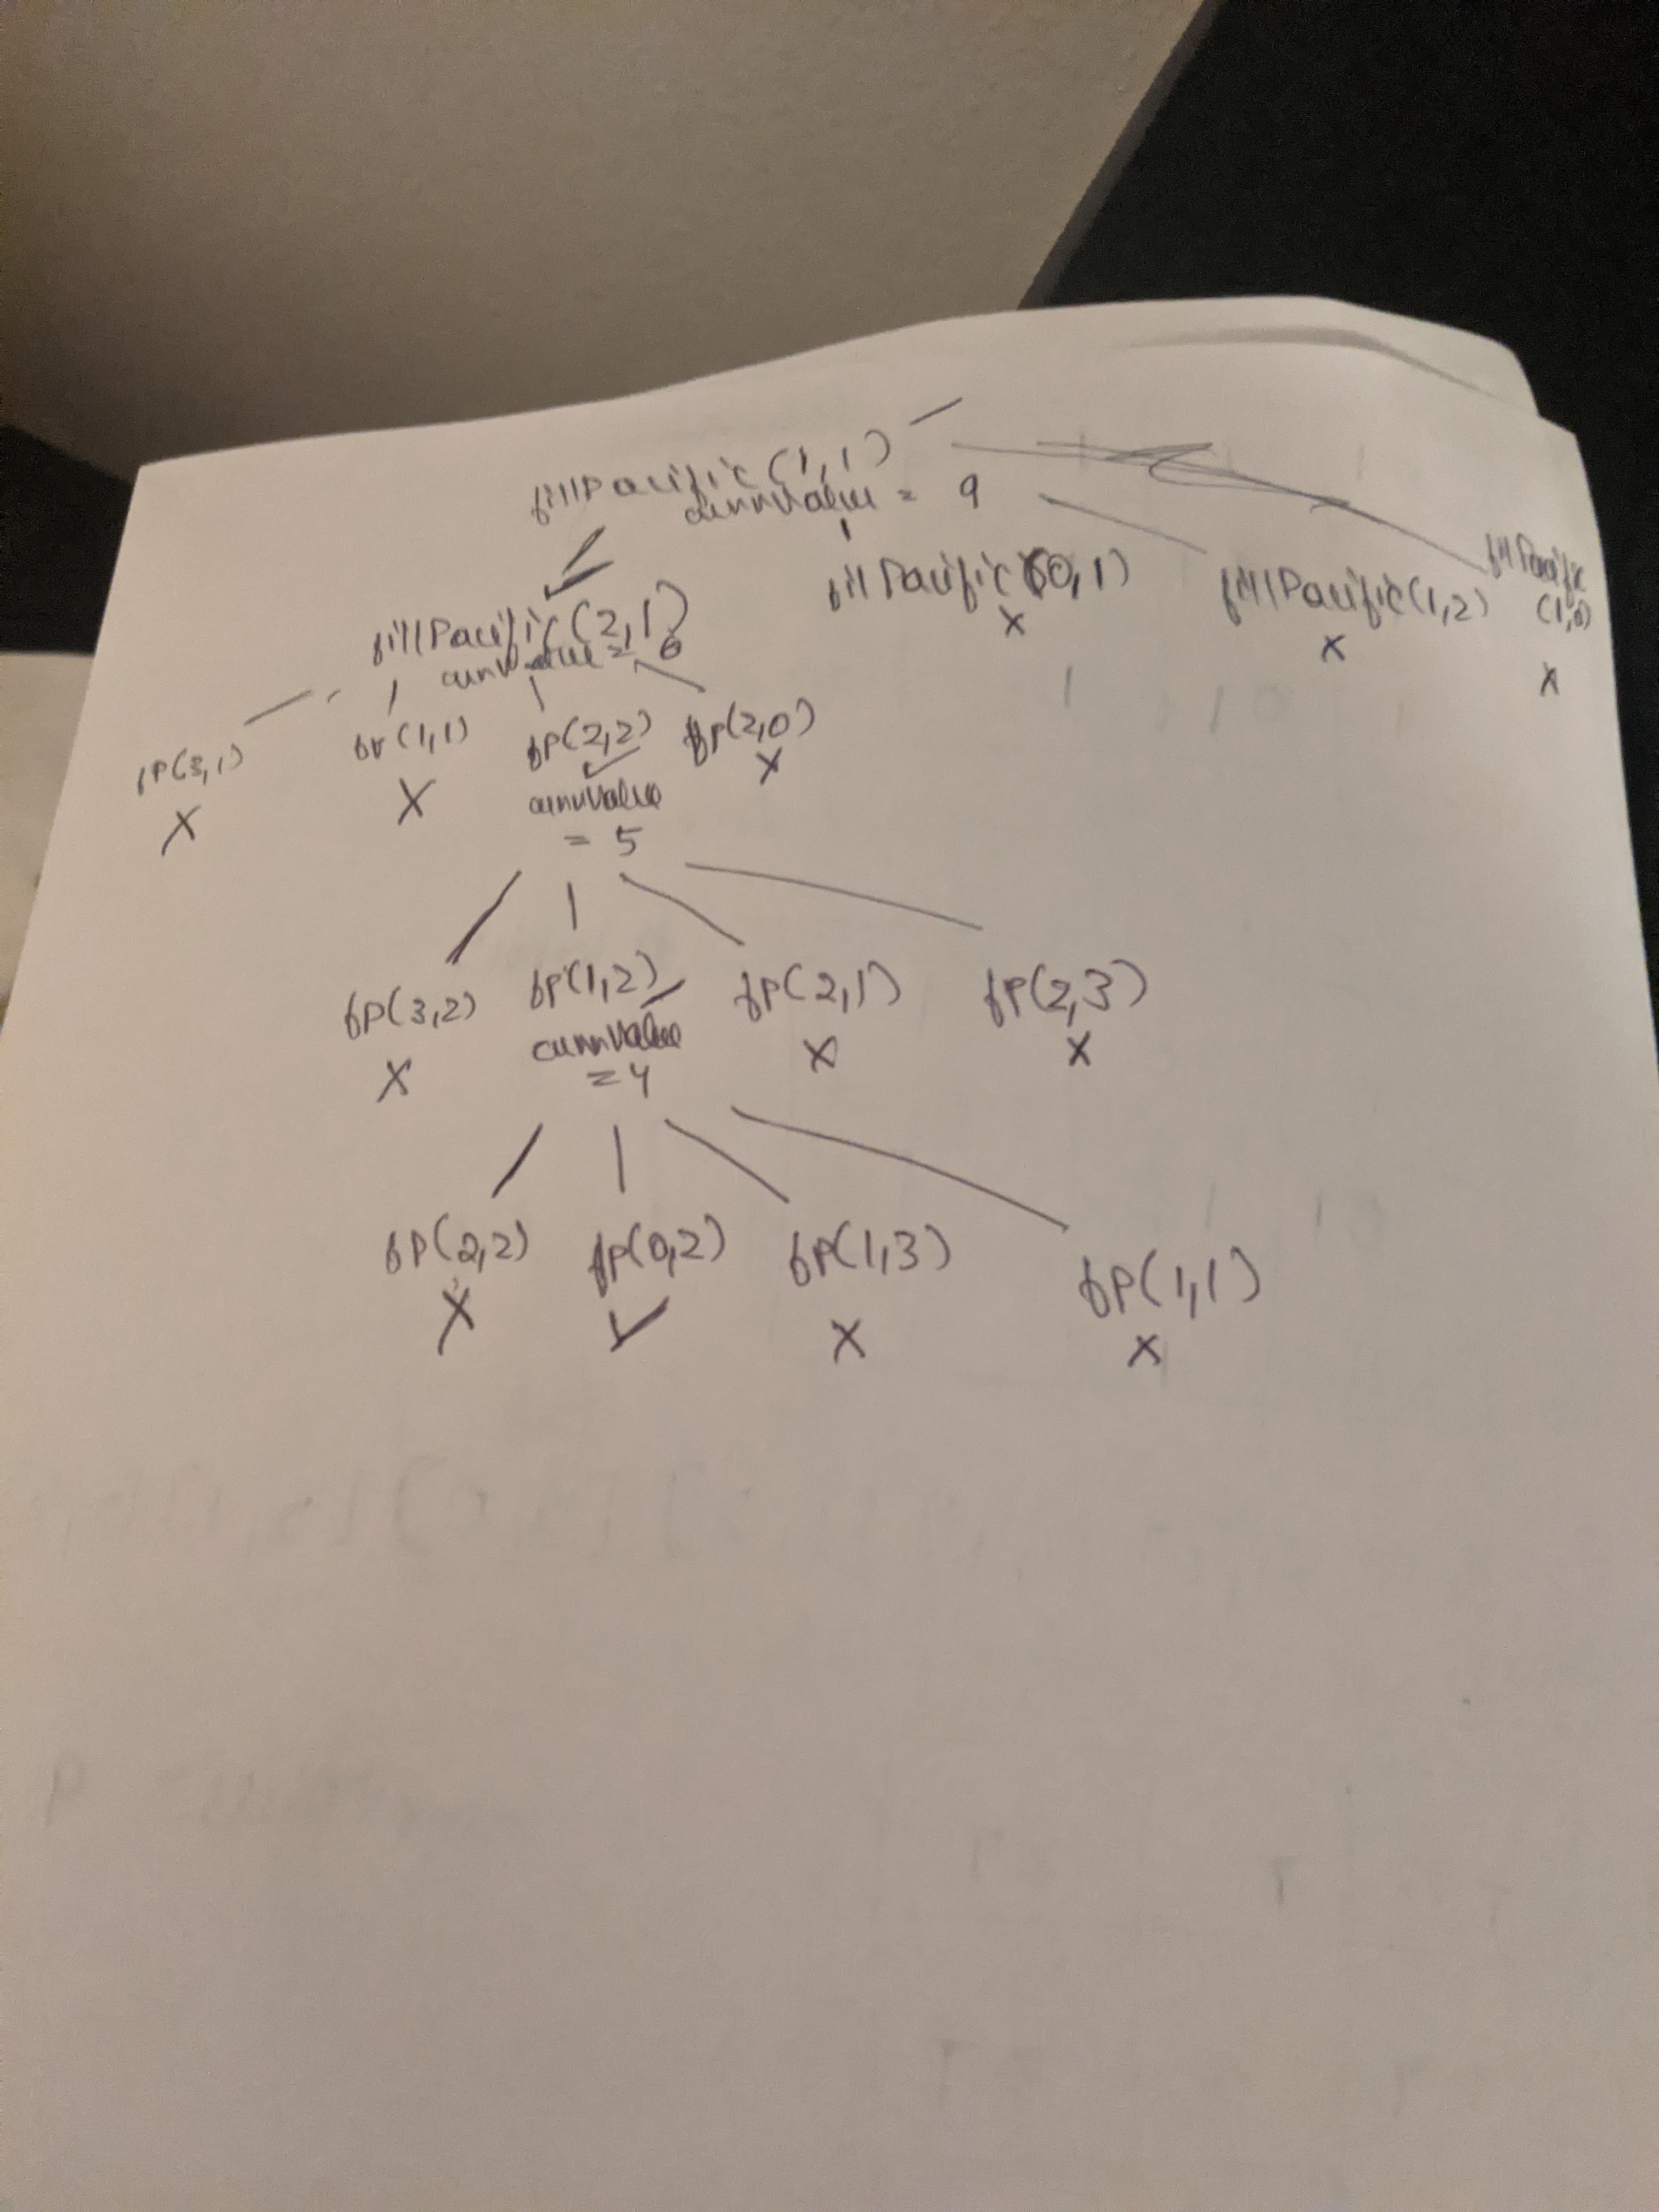 fillPacific(1,1)
currValue = 9
fillPacific(2,1)
currValue = 6
fillPacific(0,1)
X
fillPacific(1,2)
X
fillPacific
(1,0)
X
fP(3,1)
X
fP(1,1)
X
fP(2,2)
currValue
= 5
fP(2,0)
X
fP(3,2)
X
fP(1,2)
currValue
=4
fP(2,1)
X
fP(2,3)
X
fP(2,2)
X
fP(0,2)
✓
fP(1,3)
X
fP(1,1)
X